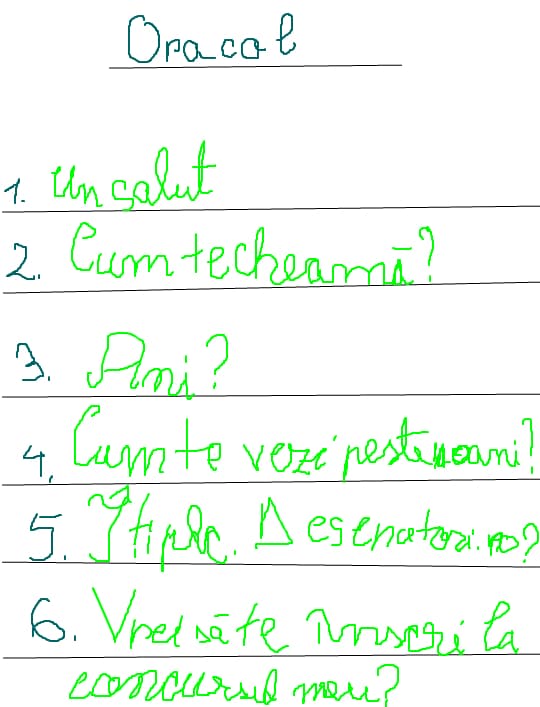 Oracol
1. Un salut
2. Cum te cheamă?
3. Ani?
4. Cum te vezi peste noani?
5. Îți plc. Desenatori.ro?
6. Vrei să te înnscri la
concursul meu?